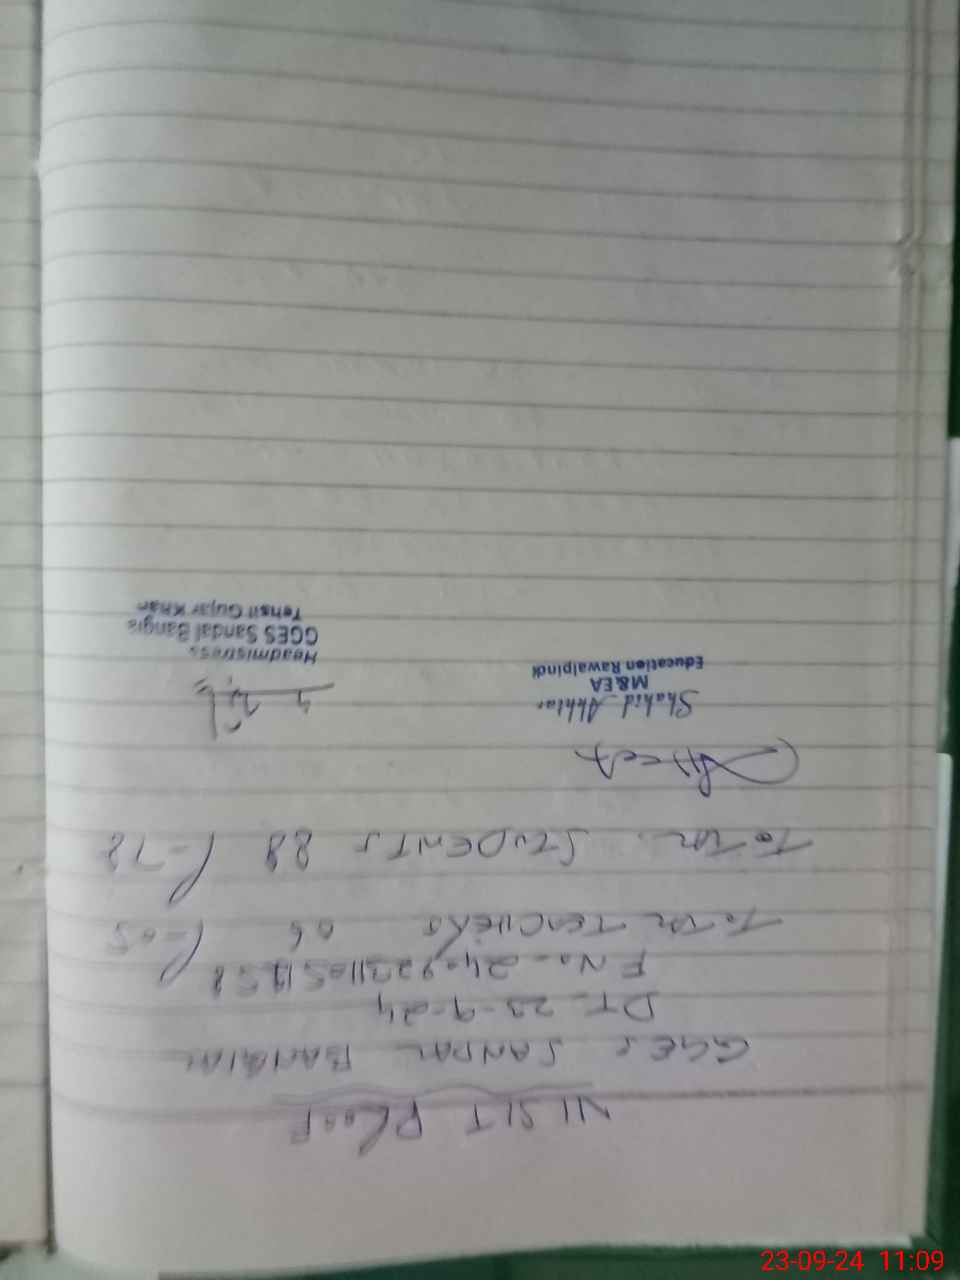 VISIT PROOF
GGES SANDAL BANGIAL
DT- 23-9-24
F No- 
TOTAL TEACHERS 06 P-05
TOTAL STUDENTS 88 P-78
Shahid Akhtar
M&EA
Education Rawalpindi
Headmistress
GGES Sandal Bangial
Tehsil Gujar Khan
23-09-24 11:09